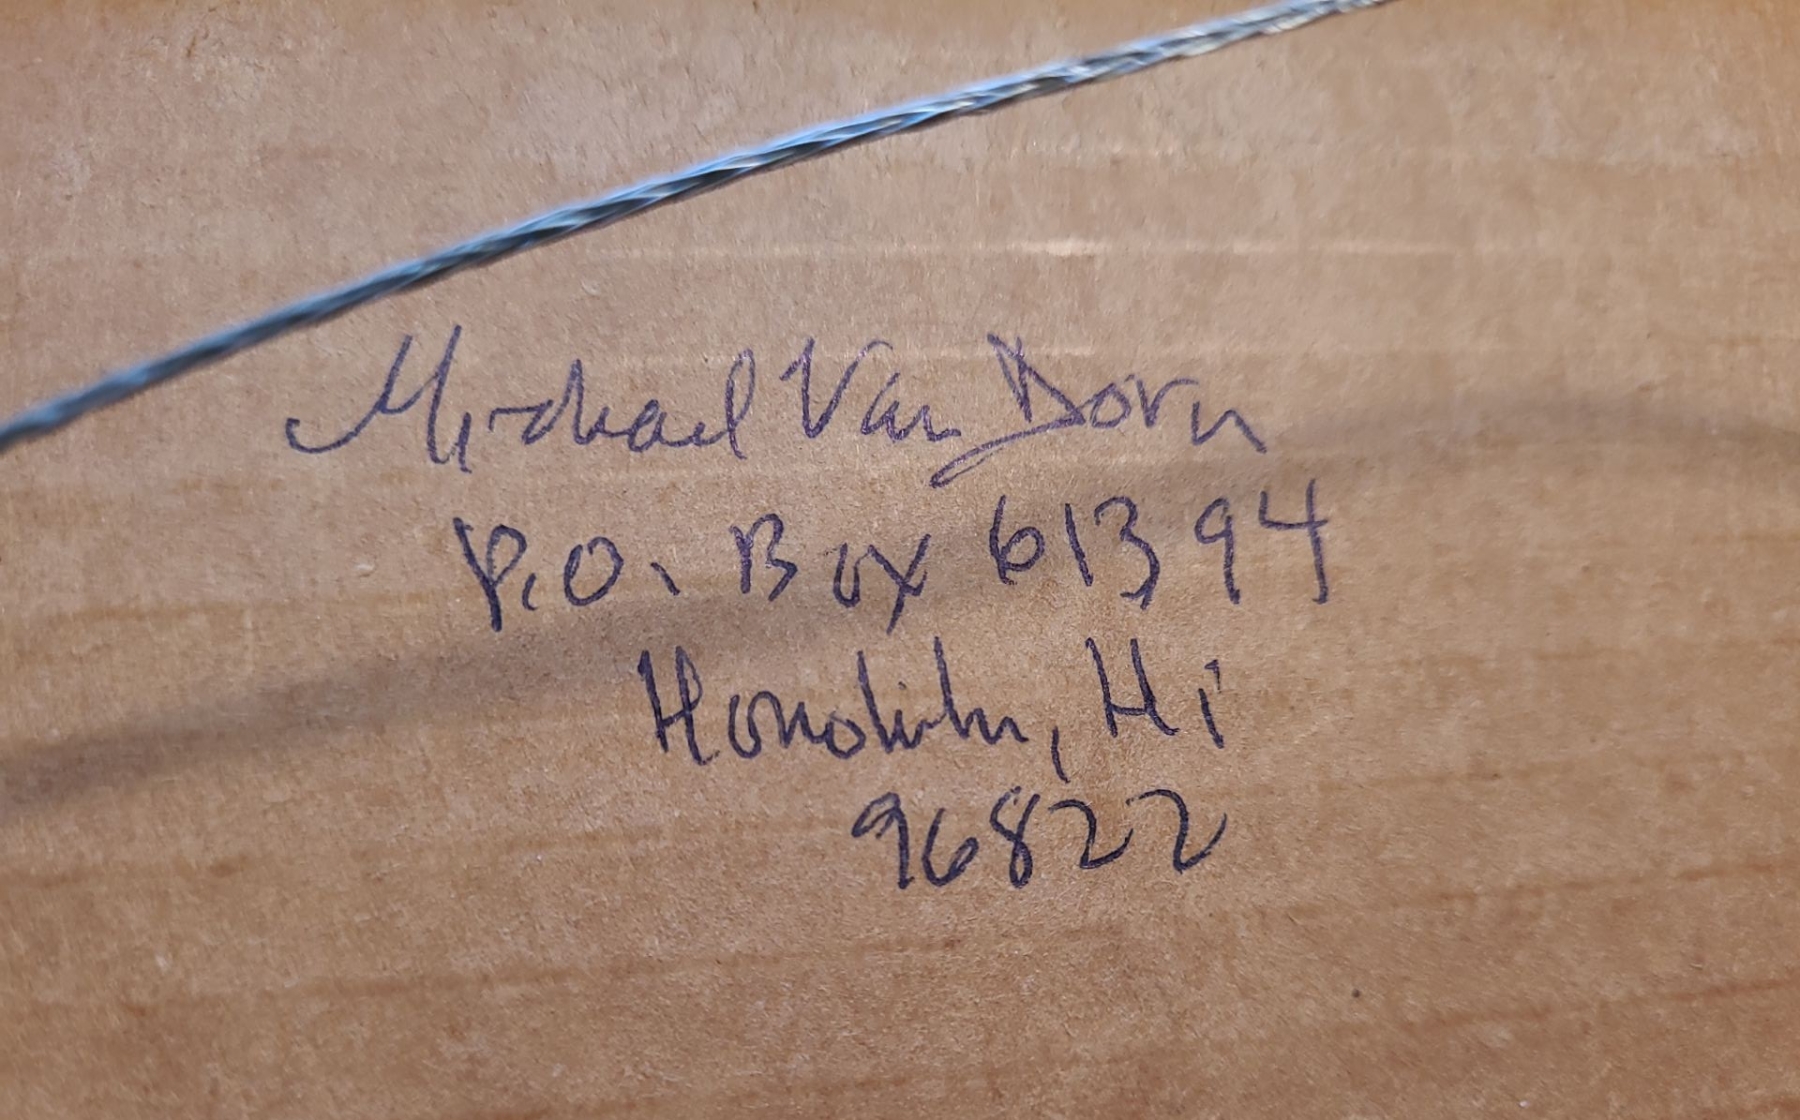 Michael Van Dorn
P.O. Box 61394
Honolulu, Hi
96822